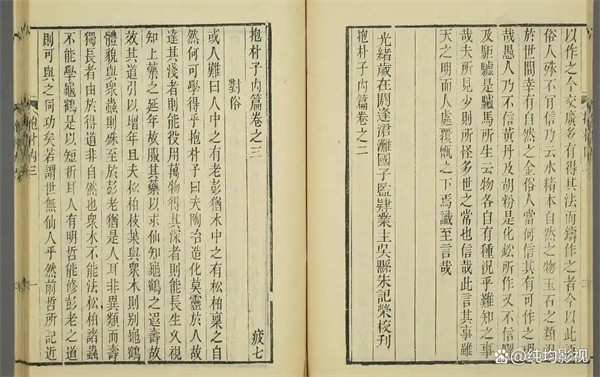 以作之今交廣多有得其法而鑄作之者今以此
俗人殊不肯信乃云水精本自然之物玉石之類況
於世間幸有自然之金俗人當何信其有可作之
哉愚人乃不信黃丹及胡粉是化鉛所作又不信騾
及駏驉是驢馬所生云物各自有種況乎難知之事
哉夫所見少則所怪多世之常也信哉此言其事雖
天之明而人處覆甑之下焉識至言哉
光緒歲在閼逢涒灘國子監肄業生吳縣朱記榮校刊
抱朴子內篇卷之二
抱朴子內篇卷之三
對俗 疲七
或人難曰人中之有老彭猶木中之有松柏稟之自
然何可學得乎抱朴子曰夫陶冶造化莫靈於人故
達其淺者則能役用萬物得其深者則能長生久視
知上藥之延年故服其藥以求仙知龜鶴之遐壽故
效其道引以增年且夫松柏枝葉與衆木則別龜鶴
體貌與衆蟲則殊至於彭老猶是人耳非異類而壽
獨長者由於得道非自然也衆木不能法松柏諸蟲
不能學龜鶴是以短折耳人有明哲能修彭老之道
則可與之同功矣若謂世無仙人乎然前哲所記近
抱朴內三
@纯均影视